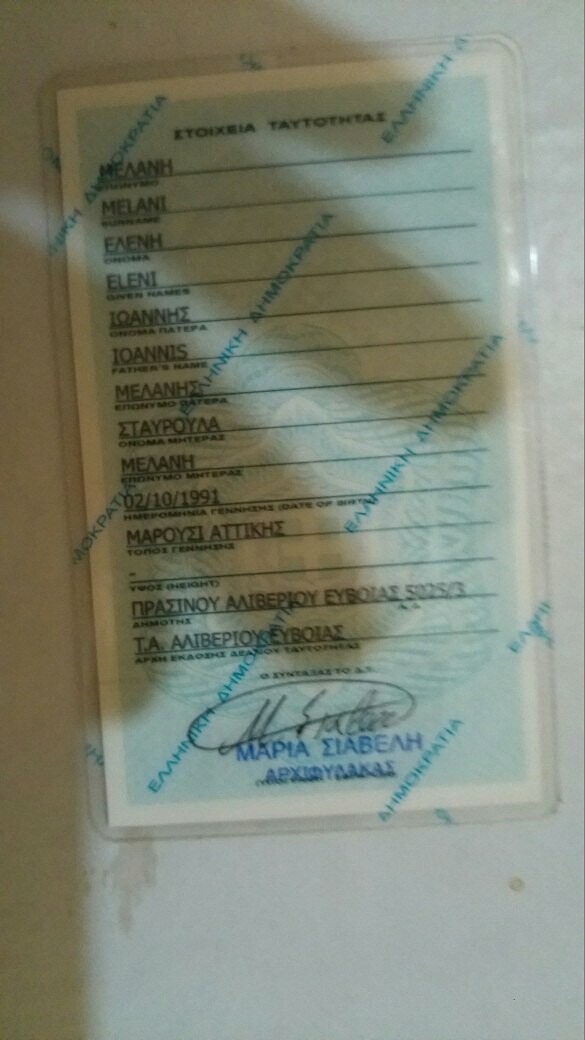 ΣΤΟΙΧΕΙΑ ΤΑΥΤΟΤΗΤΑΣ
ΜΕΛΑΝΗ
ΕΠΩΝΥΜΟ
MELANI
SURNAME
ΕΛΕΝΗ
ΟΝΟΜΑ
ELENI
GIVEN NAMES
ΙΩΑΝΝΗΣ
ΟΝΟΜΑ ΠΑΤΕΡΑ
IOANNIS
FATHER'S NAME
ΜΕΛΑΝΗΣ
ΕΠΩΝΥΜΟ ΠΑΤΕΡΑ
ΣΤΑΥΡΟΥΛΑ
ΟΝΟΜΑ ΜΗΤΕΡΑΣ
ΜΕΛΑΝΗ
ΕΠΩΝΥΜΟ ΜΗΤΕΡΑΣ
02/10/1991
ΗΜΕΡΟΜΗΝΙΑ ΓΕΝΝΗΣΗΣ (DATE OF BIRTH)
ΜΑΡΟΥΣΙ ΑΤΤΙΚΗΣ
ΤΟΠΟΣ ΓΕΝΝΗΣΗΣ
-
ΥΨΟΣ (HEIGHT)
ΠΡΑΣΙΝΟΥ ΑΛΙΒΕΡΙΟΥ ΕΥΒΟΙΑΣ 5025/3
ΔΗΜΟΤΗΣ
Τ.Α. ΑΛΙΒΕΡΙΟΥ ΕΥΒΟΙΑΣ
ΑΡΧΗ ΕΚΔΟΣΗΣ ΔΕΛΤΙΟΥ ΤΑΥΤΟΤΗΤΑΣ
Ο ΣΥΝΤΑΞΑΣ ΤΟ Δ.Τ.
ΜΑΡΙΑ ΣΙΑΒΕΛΗ
ΑΡΧΙΦΥΛΑΚΑΣ
ΕΛΛΗΝΙΚΗ ΔΗΜΟΚΡΑΤΙΑ
ΕΛΛΗΝΙΚΗ
ΕΛΛΗΝΙΚΗ ΔΗΜΟΚΡΑΤΙΑ
ΕΛΛΗΝΙΚΗ ΔΗΜΟΚΡΑΤΙΑ
ΕΛΛΗΝΙΚΗ ΔΗΜΟΚΡΑΤΙΑ
ΔΗΜΟΚΡΑΤΙΑ